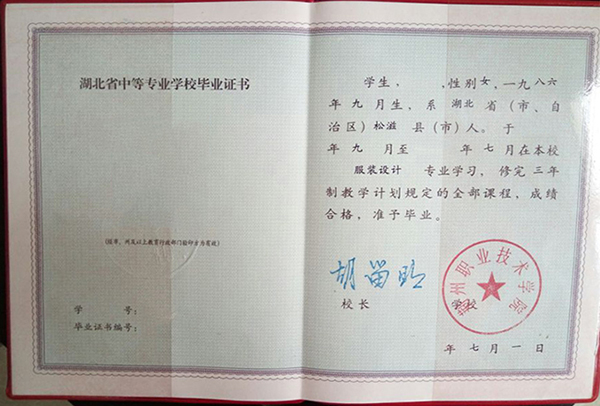 湖北省中等专业学校毕业证书
(须市、州及以上教育行政部门验印方为有效)
学 号:
毕业证书编号:
学生, ,性别女,一九八六
年九月生,系湖北省(市、自
治区)松滋县(市)人。于
年九月至 年七月在本校
服装设计 专业学习,修完三年
制教学计划规定的全部课程,成绩
合格,准予毕业。
校长 学校
州职业技术学院
年七月一日